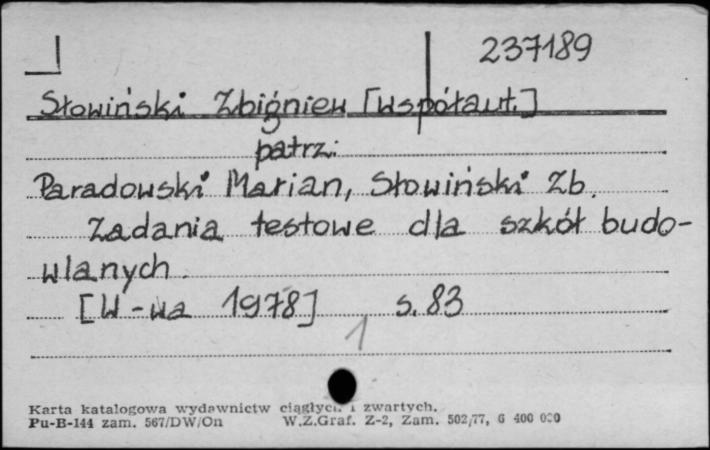 237189
Słowiński Zbigniew [współaut.]
patrz:
Paradowski Marian, Słowiński Zb.
Zadania testowe dla szkół budo-
wlanych.
[W-wa 1978] s. 83
1
Karta katalogowa wydawnictw ciągłych i zwartych.
Pu-B-144 zam. 567/DW/On W.Z.Graf. Z-2, Zam. 502/77, 6 400 000